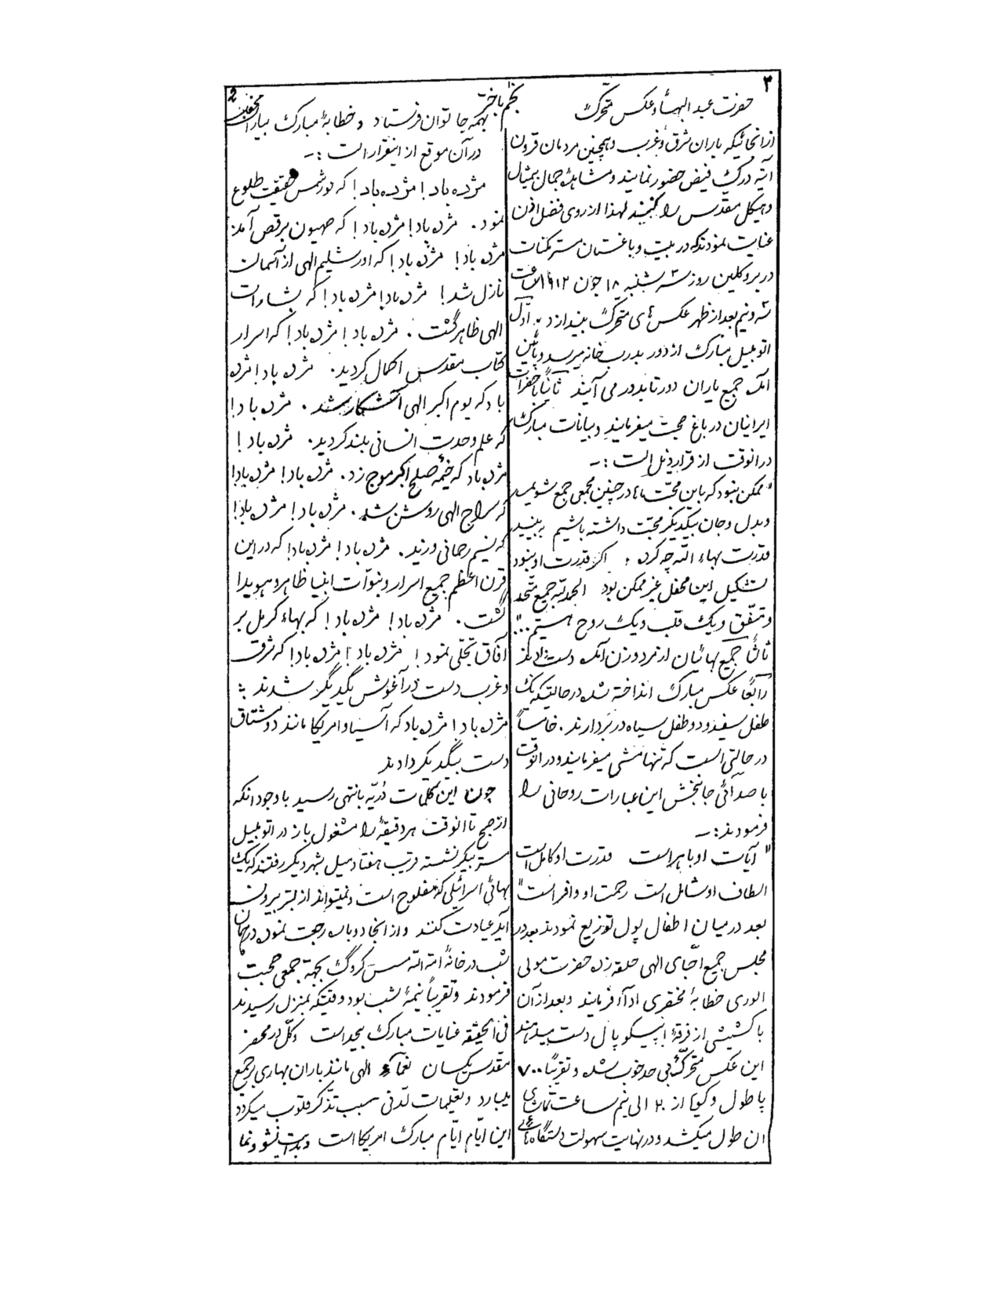 ۳
نجم باختر
2
حضرت عبد البهاء و عکس متحرک
از انجائیکه یاران شرق و غرب و همچنین مردمان قرون
آتیه درک فیض حضور نمایند و مشاهدهٔ جمال بیمثال
و هیکل مقدس را کنند لهذا از روی فضل اذن
عنایت نمودند که در بیت و باغستان مستر مکنات
در بروکلین روز سه شنبه ۱۸ جون ۱۹۱۲ ساعت
سه و نیم بعد از ظهر عکس های متحرک بیندازد . اوّل
اتوموبیل مبارک از دور بدرب خانه میرسد و پائین
آمده جمیع یاران دور تا بدور می آیند ثانیاً با حضرات
ایرانیان در باغ صحبت میفرمایند و بیانات مبارک
در انوقت از قرار ذیل است :-
" ممکن نبود که باین محبت ما در چنین مجمعی جمع شویم
و بدل و جان بیکدیگر محبت داشته باشیم ببینید
قدرت بهاء الله چه کرده . اگر قدرت او نبود
تشکیل این محفل غیر ممکن بود الحمد لله جمیع متحد
و متفق و یک قلب و یک روح هستیم ..."
ثالثاً جمیع بهائیان از مرد و زن آمده دست داده
رابعاً عکس مبارک انداخته شده در حالتیکه یک
طفل سفید و دو طفل سیاه در بر دارند . خامساً
در حالتی است که تنها مشی میفرمایند و در انوقت
با صدائی جانبخش این عبارات روحانی را
فرمودند :-
" آیات او باهر است قدرت او کامل است
الطاف او شامل است رحمت او وافر است "
بعد در میان اطفال پول توزیع نمودند بعد در
مجلس جمیع احبای الهی حلقه زده حضرت مولی
الوری خطابهٔ مختصری ادا فرمایند و بعد از آن
با کشیشی از فرقهٔ اپیسکوپال دست میدهند
این عکس متحرک بی حد خوب شده و تقریباً ۷۰۰
پا طول و گویا از ۲۰ الی نیم ساعت تماشای
ان طول میکشد و در نهایت سهولت دستگاه
بهمه جا توان فرستاد و خطابهٔ مبارک بیاران
در آن موقع از اینقرار است :-
مژده باد ! مژده باد ! که نور شمس حقیقت طلوع
نمود . مژده باد ! مژده باد ! که صهیون برقص آمد .
مژده باد ! مژده باد ! که اورشلیم الهی از آسمان
نازل شد ! مژده باد ! مژده باد ! که بشارات
الهی ظاهر گشت . مژده باد ! مژده باد ! که اسرار
کتاب مقدس اکمال گردید . مژده باد ! مژده
باد که یوم اکبر الهی آشکار شد . مژده باد !
که علم وحدت انسانی بلند گردید . مژده باد !
مژده باد که خیمهٔ صلح اکبر موج زد . مژده باد ! مژده باد !
که سراج الهی روشن شد . مژده باد ! مژده باد !
که نسیم رحمانی وزید . مژده باد ! مژده باد ! که در این
قرن اعظم جمیع اسرار و نبوّات انبیا ظاهر و هویدا
گشت . مژده باد ! مژده باد ! که بهاء کرمل بر
آفاق تجلی نمود ! مژده باد ! مژده باد ! که شرق
و غرب دست در آغوش یکدیگر شدند .
مژده باد ! مژده باد که آسیا و امریکا مانند دو مشتاق
دست بیکدیگر دادند
چون این کلمات درّیه بانتهی رسید با وجود انکه
از صبح تا انوقت هر دقیقه را مشغول باز در اتوموبیل
مستر نشسته قریب هفتاد میل بشهر دیگر رفتند که یک
بهائی اسرائیلی که مفلوج است و نمیتواند از بستر بیرون
آید عیادت کنند و از انجا دوباره رجعت نموده در همان
شب در خانهٔ امة الله مسس کروگ بجهة جمعی صحبت
فرمودند و تقریباً نیمهٔ شب بود وقتیکه بمنزل رسیدند
فی الحقیقه عنایات مبارک بیحد است و کل در محضر
مقدس یکسان نعماء الهی مانند باران بهاری بر جمیع
میبارد و تعلیمات لدنی سبب تذکر قلوب میگردد
این ایام ایّام مبارک امریکا است و بدایت نشو و نما